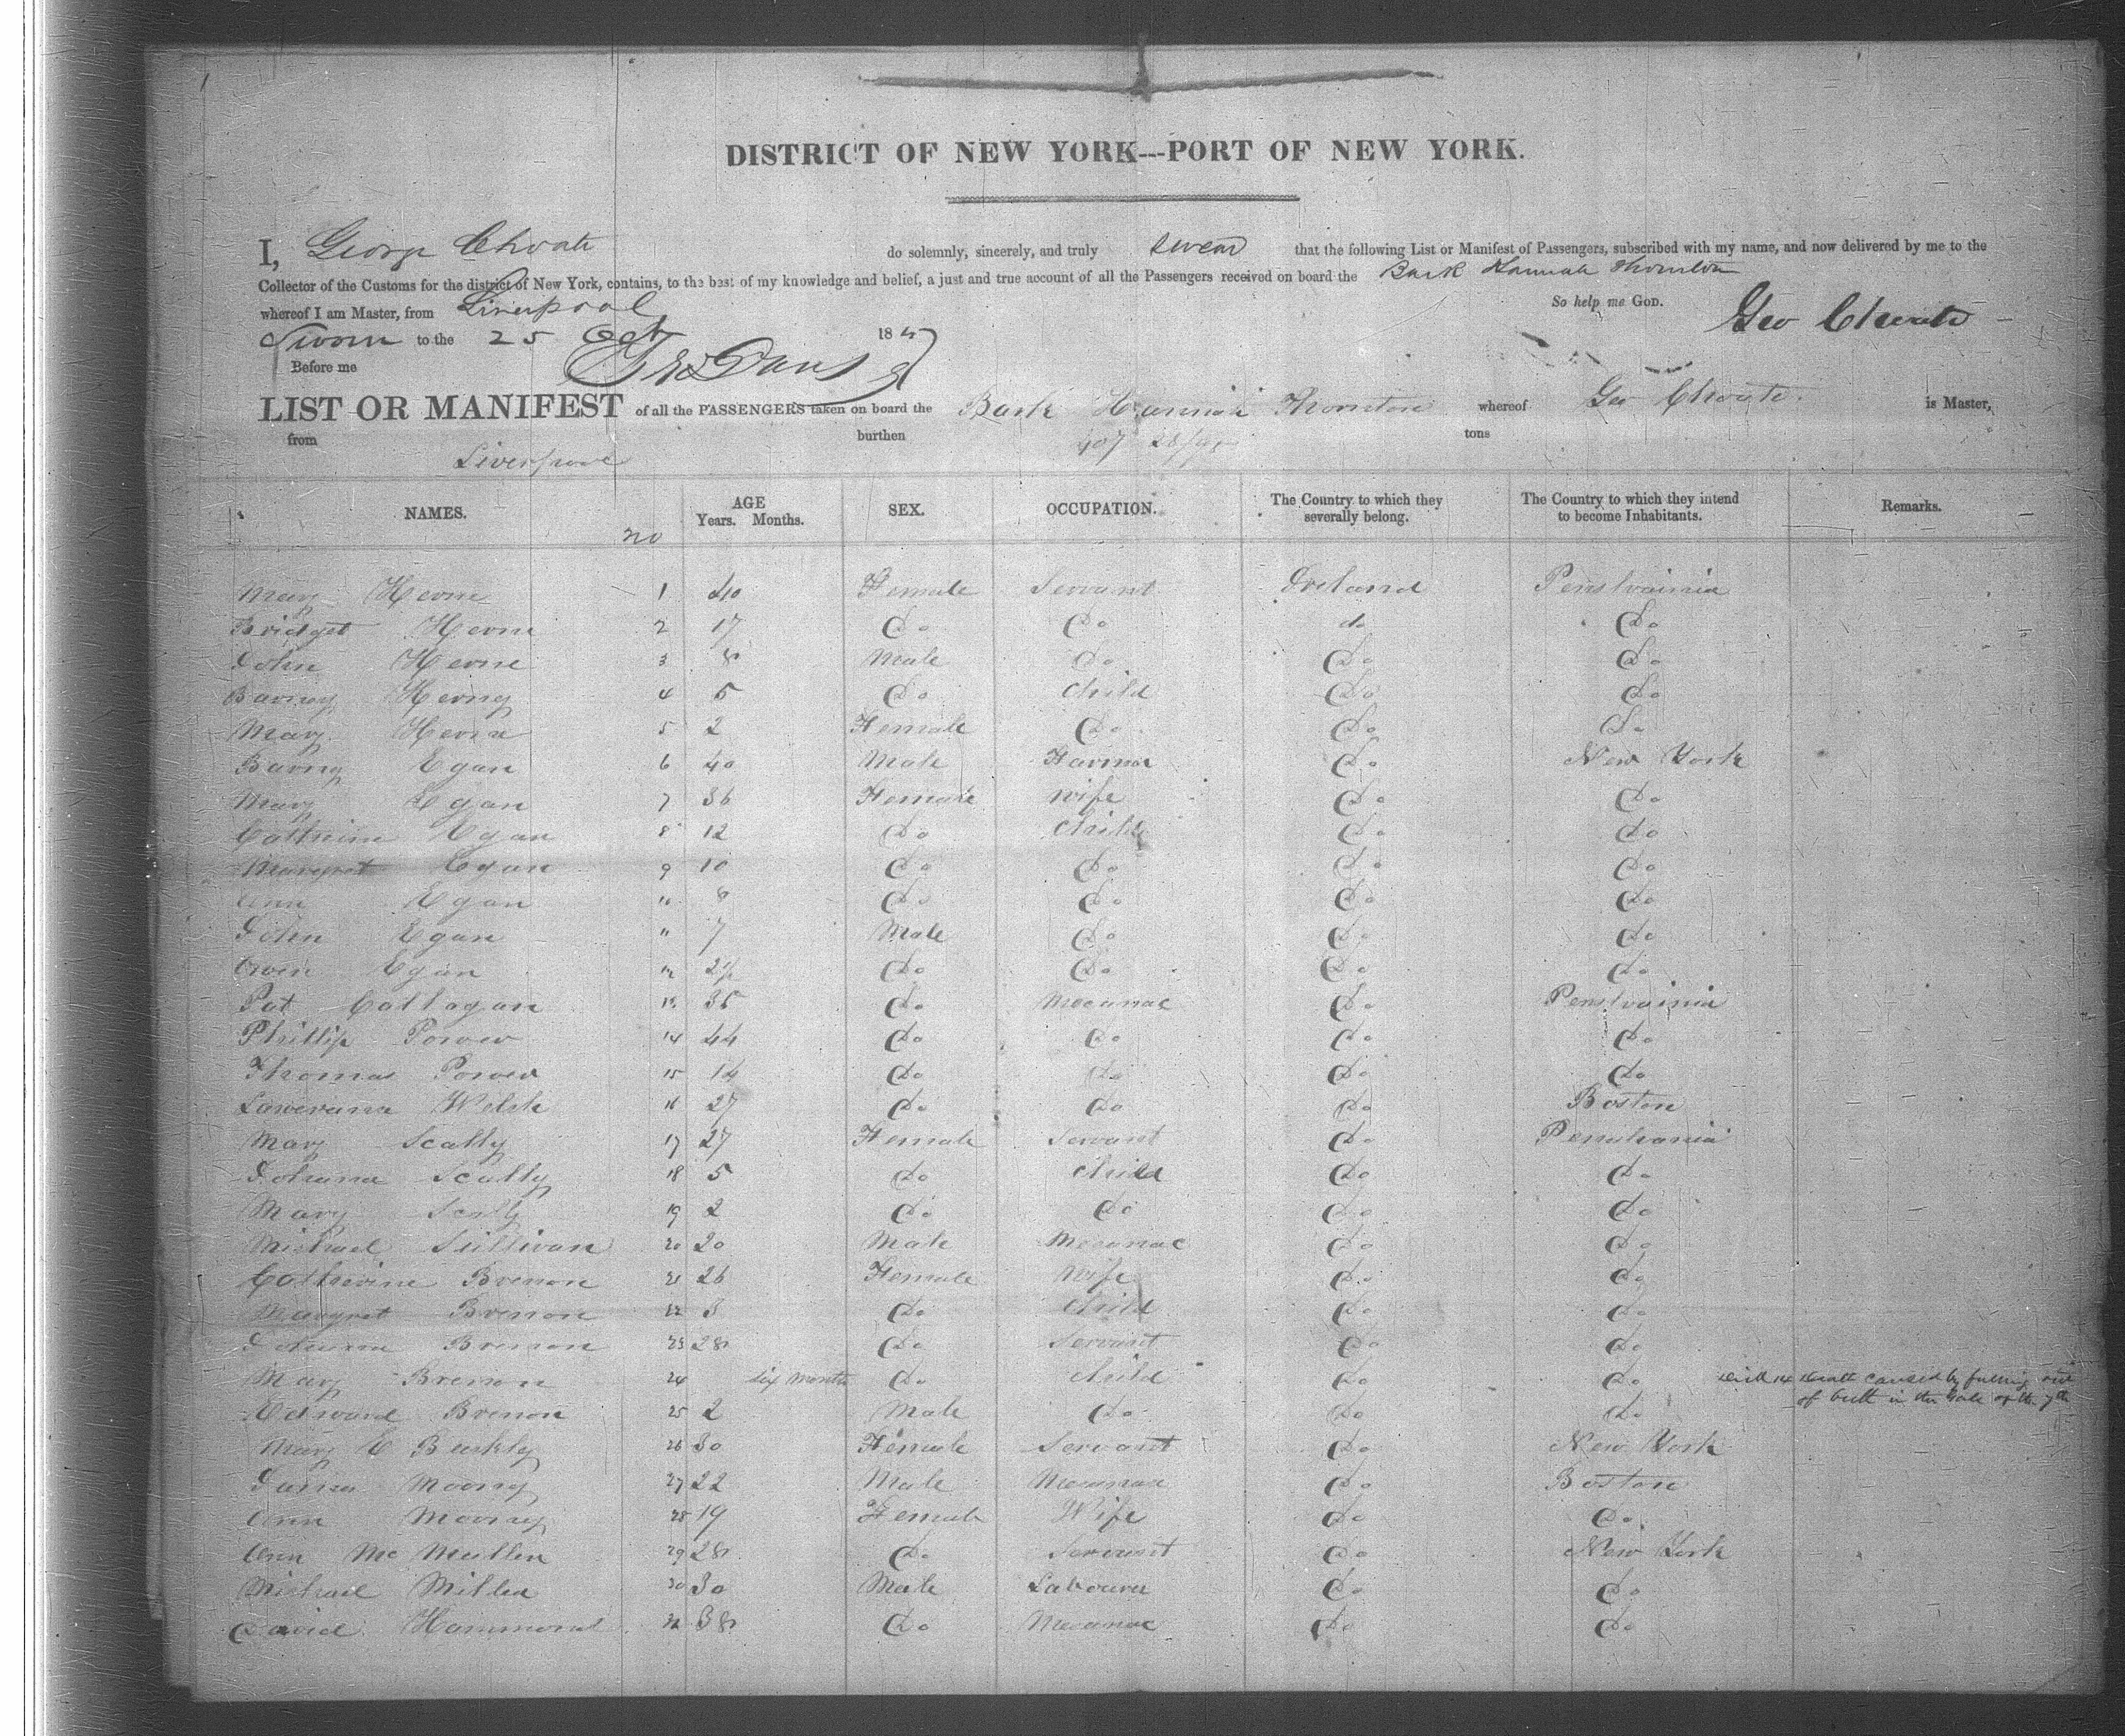 DISTRICT OF NEW YORK---PORT OF NEW YORK.
I, George Choate do solemnly, sincerely, and truly swear that the following List or Manifest of Passengers, subscribed with my name, and now delivered by me to the
Collector of the Customs for the district of New York, contains, to the best of my knowledge and belief, a just and true account of all the Passengers received on board the Bark Hannah Thornton
whereof I am Master, from Liverpool So help me GOD. Geo Choate
Sworn to the 25 Oct 184
Before me
LIST OR MANIFEST of all the PASSENGERS taken on board the Bark Hannah Thornton whereof Geo Choate is Master,
from Liverpool burthen 407 tons
NAMES. no AGE Years. Months. SEX. OCCUPATION. The Country to which they severally belong. The Country to which they intend to become Inhabitants. Remarks.
Mary Herne 1 40 Female Servant Ireland Penslvainia
Bridget Herne 2 17 Do Do do Do
John Herne 3 8 Male Do Do Do
Barney Herny 4 5 Do Child Do Do
Mary Herne 5 2 Female Do Do Do
Barny Egan 6 40 Male Farmer Do New York
Mary Egan 7 36 Female Wife Do Do
Cathrine Egan 8 12 Do Child Do Do
Margret Egan 9 10 Do Do Do Do
Ann Egan 10 8 Do Do Do Do
John Egan 11 7 Male Do Do Do
Owen Egan 12 2½ Do Do Do Do
Pat Callagan 13 35 Do Mecanac Do Penslvainia
Phillip Power 14 44 Do Do Do Do
Thomas Power 15 14 Do Do Do Do
Lawerance Welsh 16 27 Do Do Do Boston
Mary Scally 17 27 Female Servant Do Penslvania
Johanna Scully 18 5 Do Child Do Do
Mary Scully 19 2 Do Do Do Do
Michael Sullivan 20 20 Male Mecanac Do Do
Cathrine Brenon 21 26 Female Wife Do Do
Margret Brenon 22 3 Do Child Do Do
Johanna Brenon 23 28 Do Servant Do Do
Mary Brenon 24 Six Months Do Child Do Do Died 14 Death caused by falling out
of birth in the Gale of the 7th
Edward Brenon 25 2 Male Do Do Do
Mary E 26 30 Female Servant Do New York
James Moony 27 22 Male Mecanac Do Boston
Ann Moony 28 19 Female Wife Do Do
Ann Mc Mullen 29 28 Do Servant Do New York
Michael Miller 30 30 Male Labourer Do Do
David Hammond 31 38 Do Mecanac Do Do